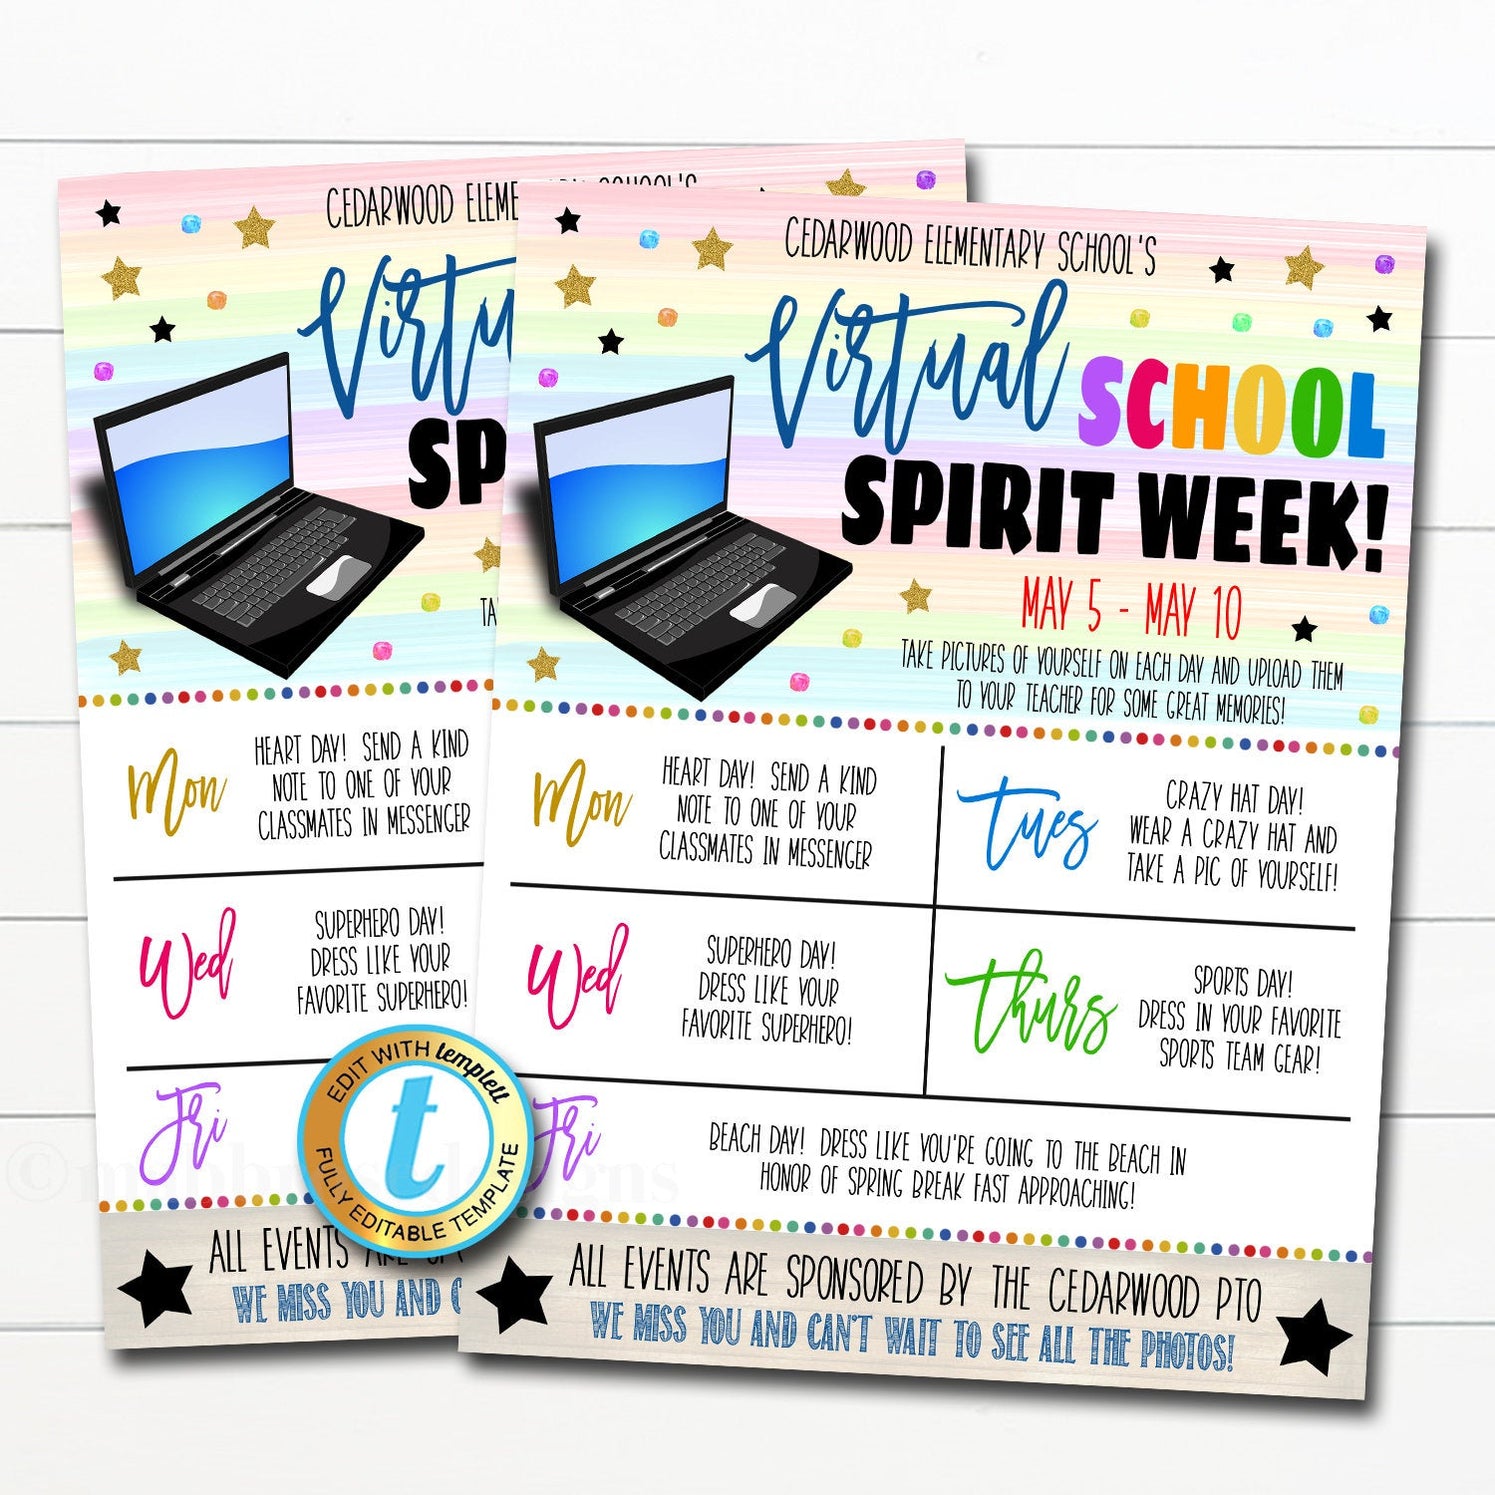 CEDARWOOD ELEME SCHOOL'S
Virtu
SP
TA
Mon
HEART DAY! SEND A KIND
NOTE TO ONE OF YOUR
CLASSMATES IN MESSENGER
Wed
SUPERHERO DAY!
DRESS LIKE YOUR
FAVORITE SUPERHERO!
Fri
ALL EVENTS
WE MISS YOU AND C
EDIT WITH templett
t
FULLY EDITABLE TEMPLATE
CEDARWOOD ELEMENTARY SCHOOL'S
Virtual SCHOOL
SPIRIT WEEK!
MAY 5 - MAY 10
TAKE PICTURES OF YOURSELF ON EACH DAY AND UPLOAD THEM
TO YOUR TEACHER FOR SOME GREAT MEMORIES!
Mon
HEART DAY! SEND A KIND
NOTE TO ONE OF YOUR
CLASSMATES IN MESSENGER
Tues
CRAZY HAT DAY!
WEAR A CRAZY HAT AND
TAKE A PIC OF YOURSELF!
Wed
SUPERHERO DAY!
DRESS LIKE YOUR
FAVORITE SUPERHERO!
Thurs
SPORTS DAY!
DRESS IN YOUR FAVORITE
SPORTS TEAM GEAR!
Fri
BEACH DAY! DRESS LIKE YOU'RE GOING TO THE BEACH IN
HONOR OF SPRING BREAK FAST APPROACHING!
ALL EVENTS ARE SPONSORED BY THE CEDARWOOD PTO
WE MISS YOU AND CAN'T WAIT TO SEE ALL THE PHOTOS!